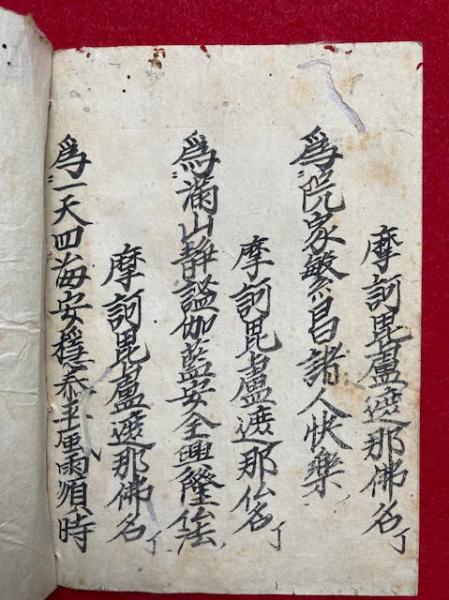 摩訶毘盧遮那佛名丁
為院家繁昌諸人快樂
摩訶毘盧遮那仏名丁
為滿山靜謐伽藍安全興隆仏法
摩訶毘盧遮那佛名丁
為一天四海安穩泰平風雨順時